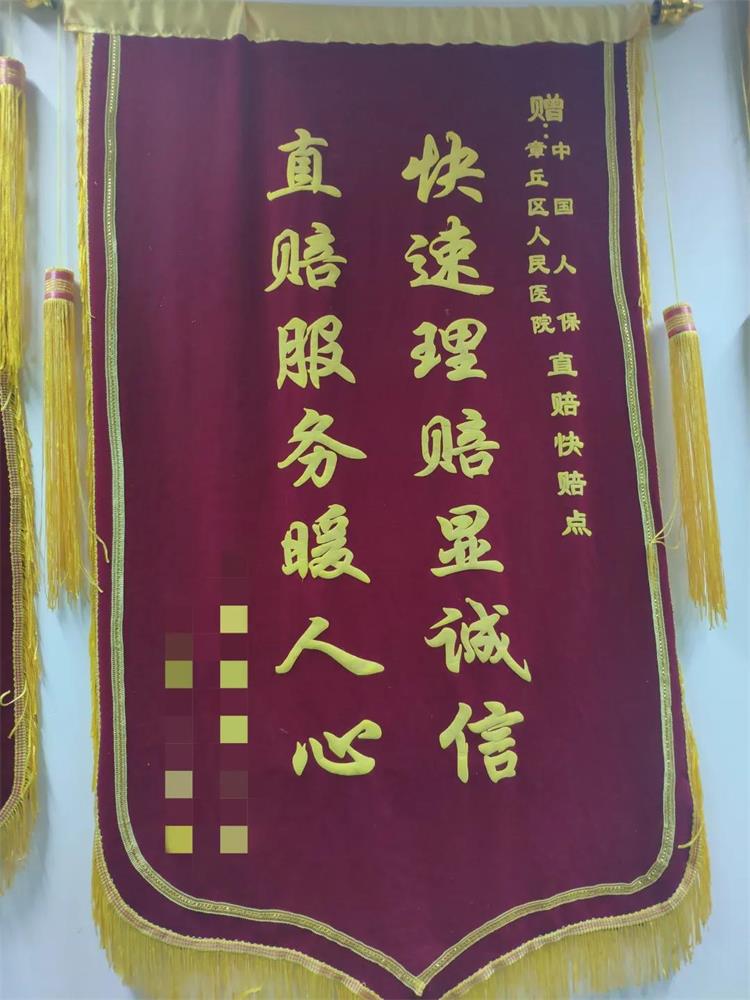 赠:中国人保
章丘区人民医院
直赔快赔点
快速理赔显诚信
直赔服务暖人心